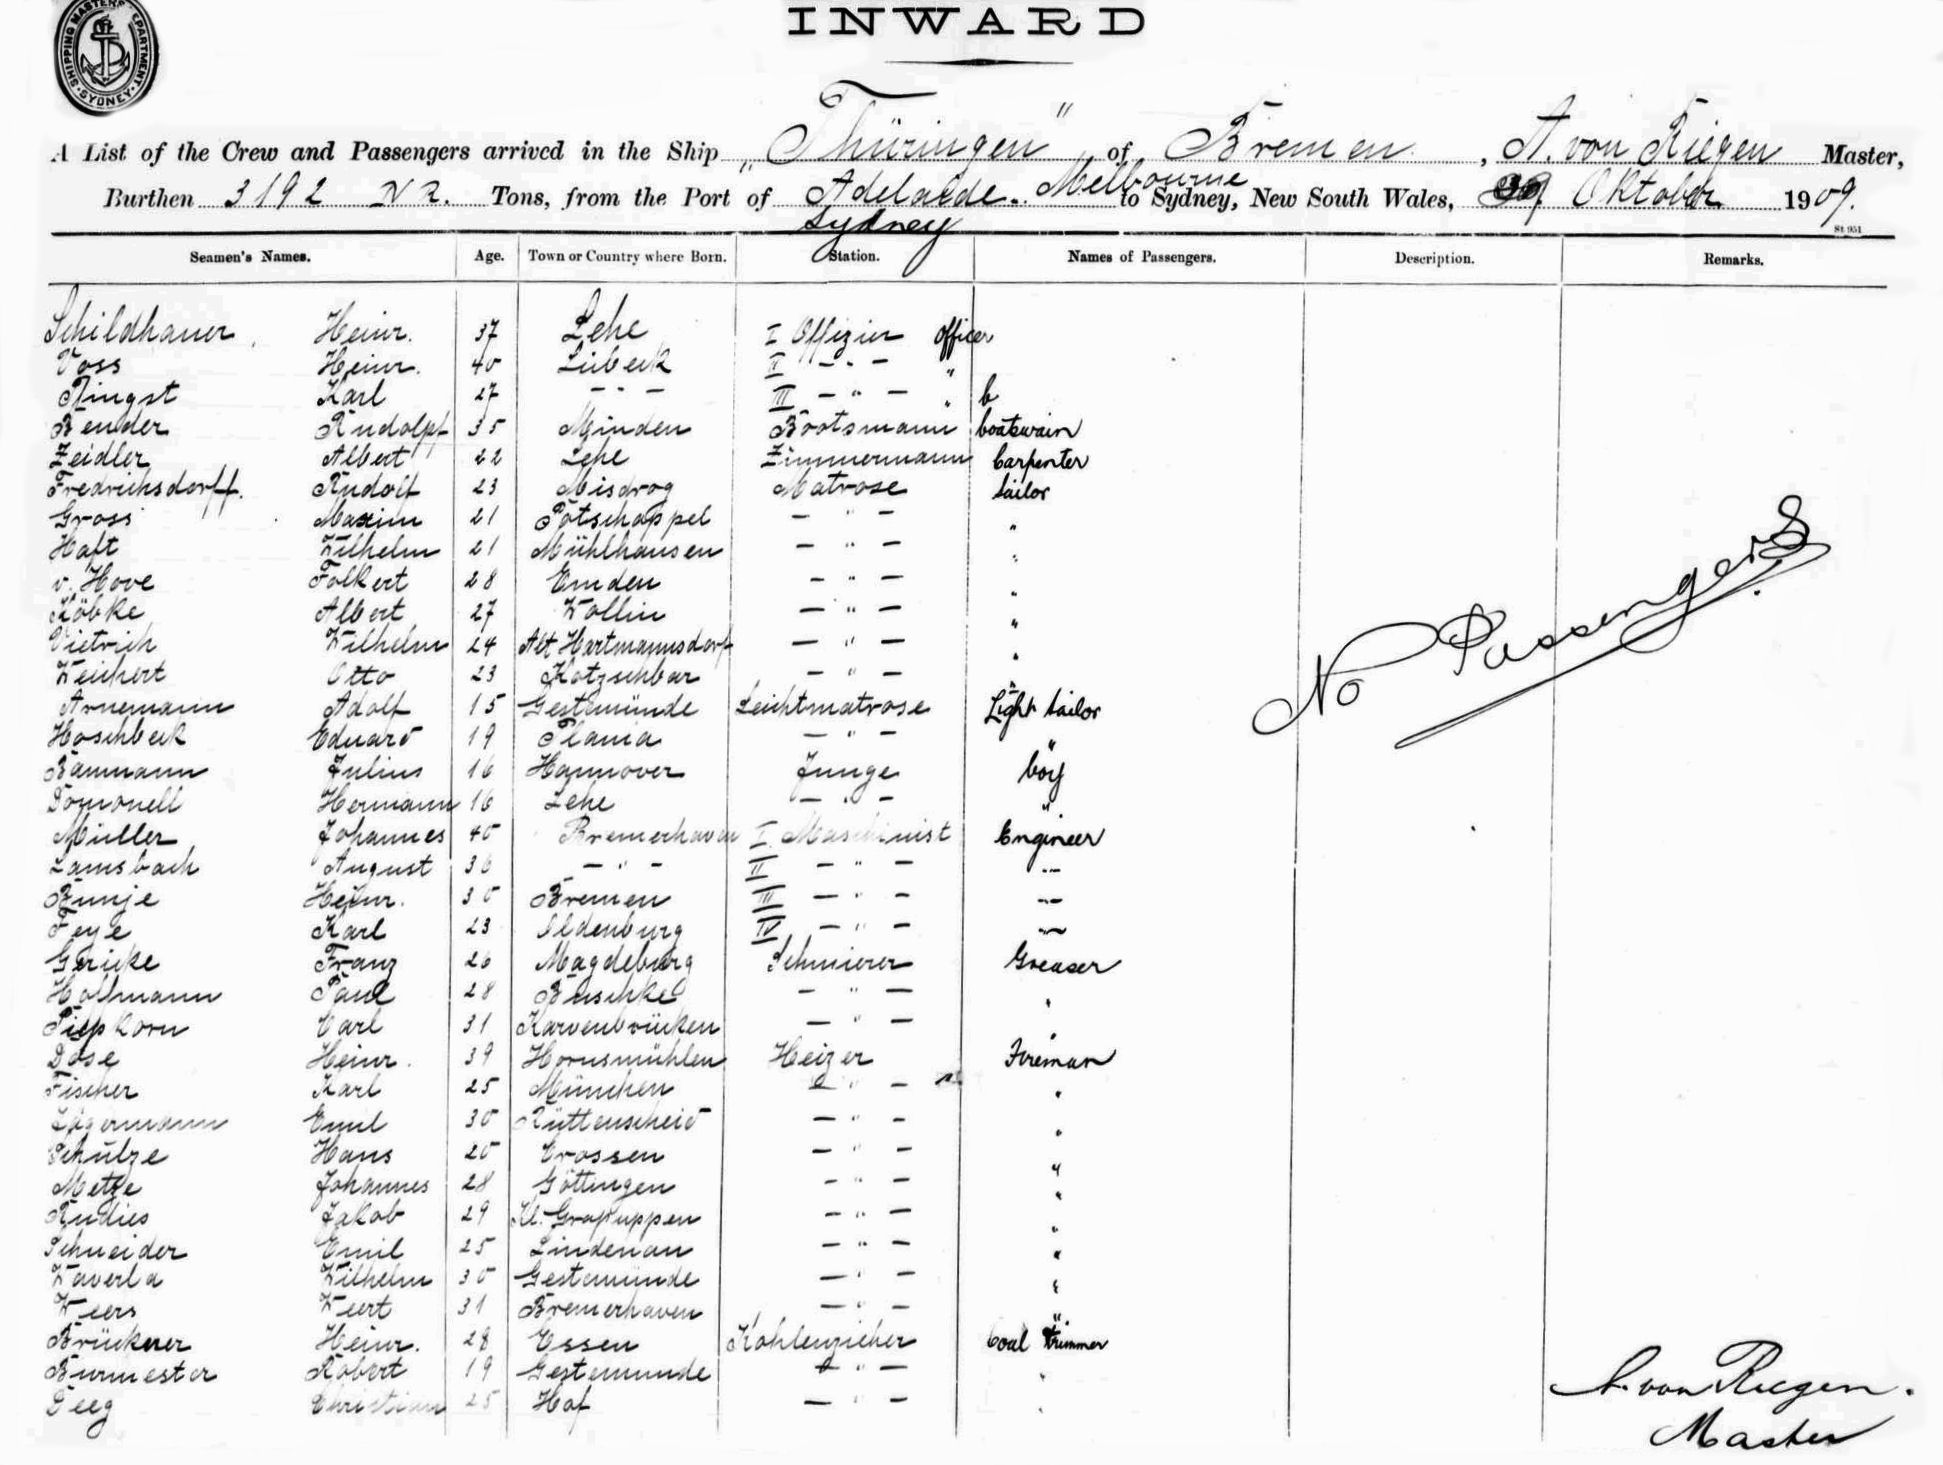 SHIPPING MASTERS DEPARTMENT · SYDNEY ·
INWARD
A List of the Crew and Passengers arrived in the Ship „Thüringen" of Bremen, A. von Riegen Master,
Burthen 3192 NR. Tons, from the Port of Adelaide. Melbourne to Sydney, New South Wales, Oktober 1909.
Sydney
St 951
Seamen's Names. Age. Town or Country where Born. Station. Names of Passengers. Description. Remarks.
Schildhauer Heinr. 37 Lehe I Offizier Officer
Voss Heinr. 40 Lübeck II — . — "
Ringst Karl 27 — " — III — " — "
Bender Rudolph 35 Minden Bootsmann boatswain
Zeidler Albert 22 Lehe Zimmermann Carpenter
Fredrichsdorff. Rudolf 23 Misdroy Matrose Sailor
Gross Maxim 21 Potschappel — " — "
Haft Wilhelm 21 Mühlhausen — " — "
v. Hove Folkert 28 Emden — " — "
Köbke Albert 27 Wollin — " — "
Dietrich Wilhelm 24 Alt Hartmannsdorf — " — "
Weichert Otto 23 Kotzschbar — " — "
Arnemann Adolf 15 Gestemünde Leichtmatrose Light Sailor
Hoschbeck Eduard 19 Plania — " — "
Baumann Julius 16 Hannover Junge boy
Domonell Hermann 16 Lehe — " — "
Müller Johannes 40 Bremerhaven I. Maschinist Engineer
Lamsbach August 36 — " — II — " — -"-
Bunje Heinr. 30 Bremen III — " — -"-
Feye Karl 23 Oldenburg IV — " — -"-
Gericke Franz 26 Magdeburg Schmierer Greaser
Hoffmann Paul 28 Buschke — " — "
Piepkorn Carl 31 Karvenbrücken — " — "
Dose Heinr. 39 Hornsmühlen Heizer Fireman
Fischer Karl 25 München — " — "
Jägermann Emil 30 Rüttenscheid — " — "
Schulze Hans 20 Crossen — " — "
Metze Johannes 28 Göttingen — " — "
Rudies Jakob 29 Kl. Grapuppen — " — "
Schneider Emil 25 Lindenau — " — "
Waverla Wilhelm 30 Gestemünde — " — "
Weers Weert 31 Bremerhaven — " — "
Brückner Heinr. 28 Essen Kohlenzieher Coal trimmer
Burmester Robert 19 Gestemunde — " — "
Deeg Christian 25 Hof — " — "
No Passengers
A. von Riegen.
Master